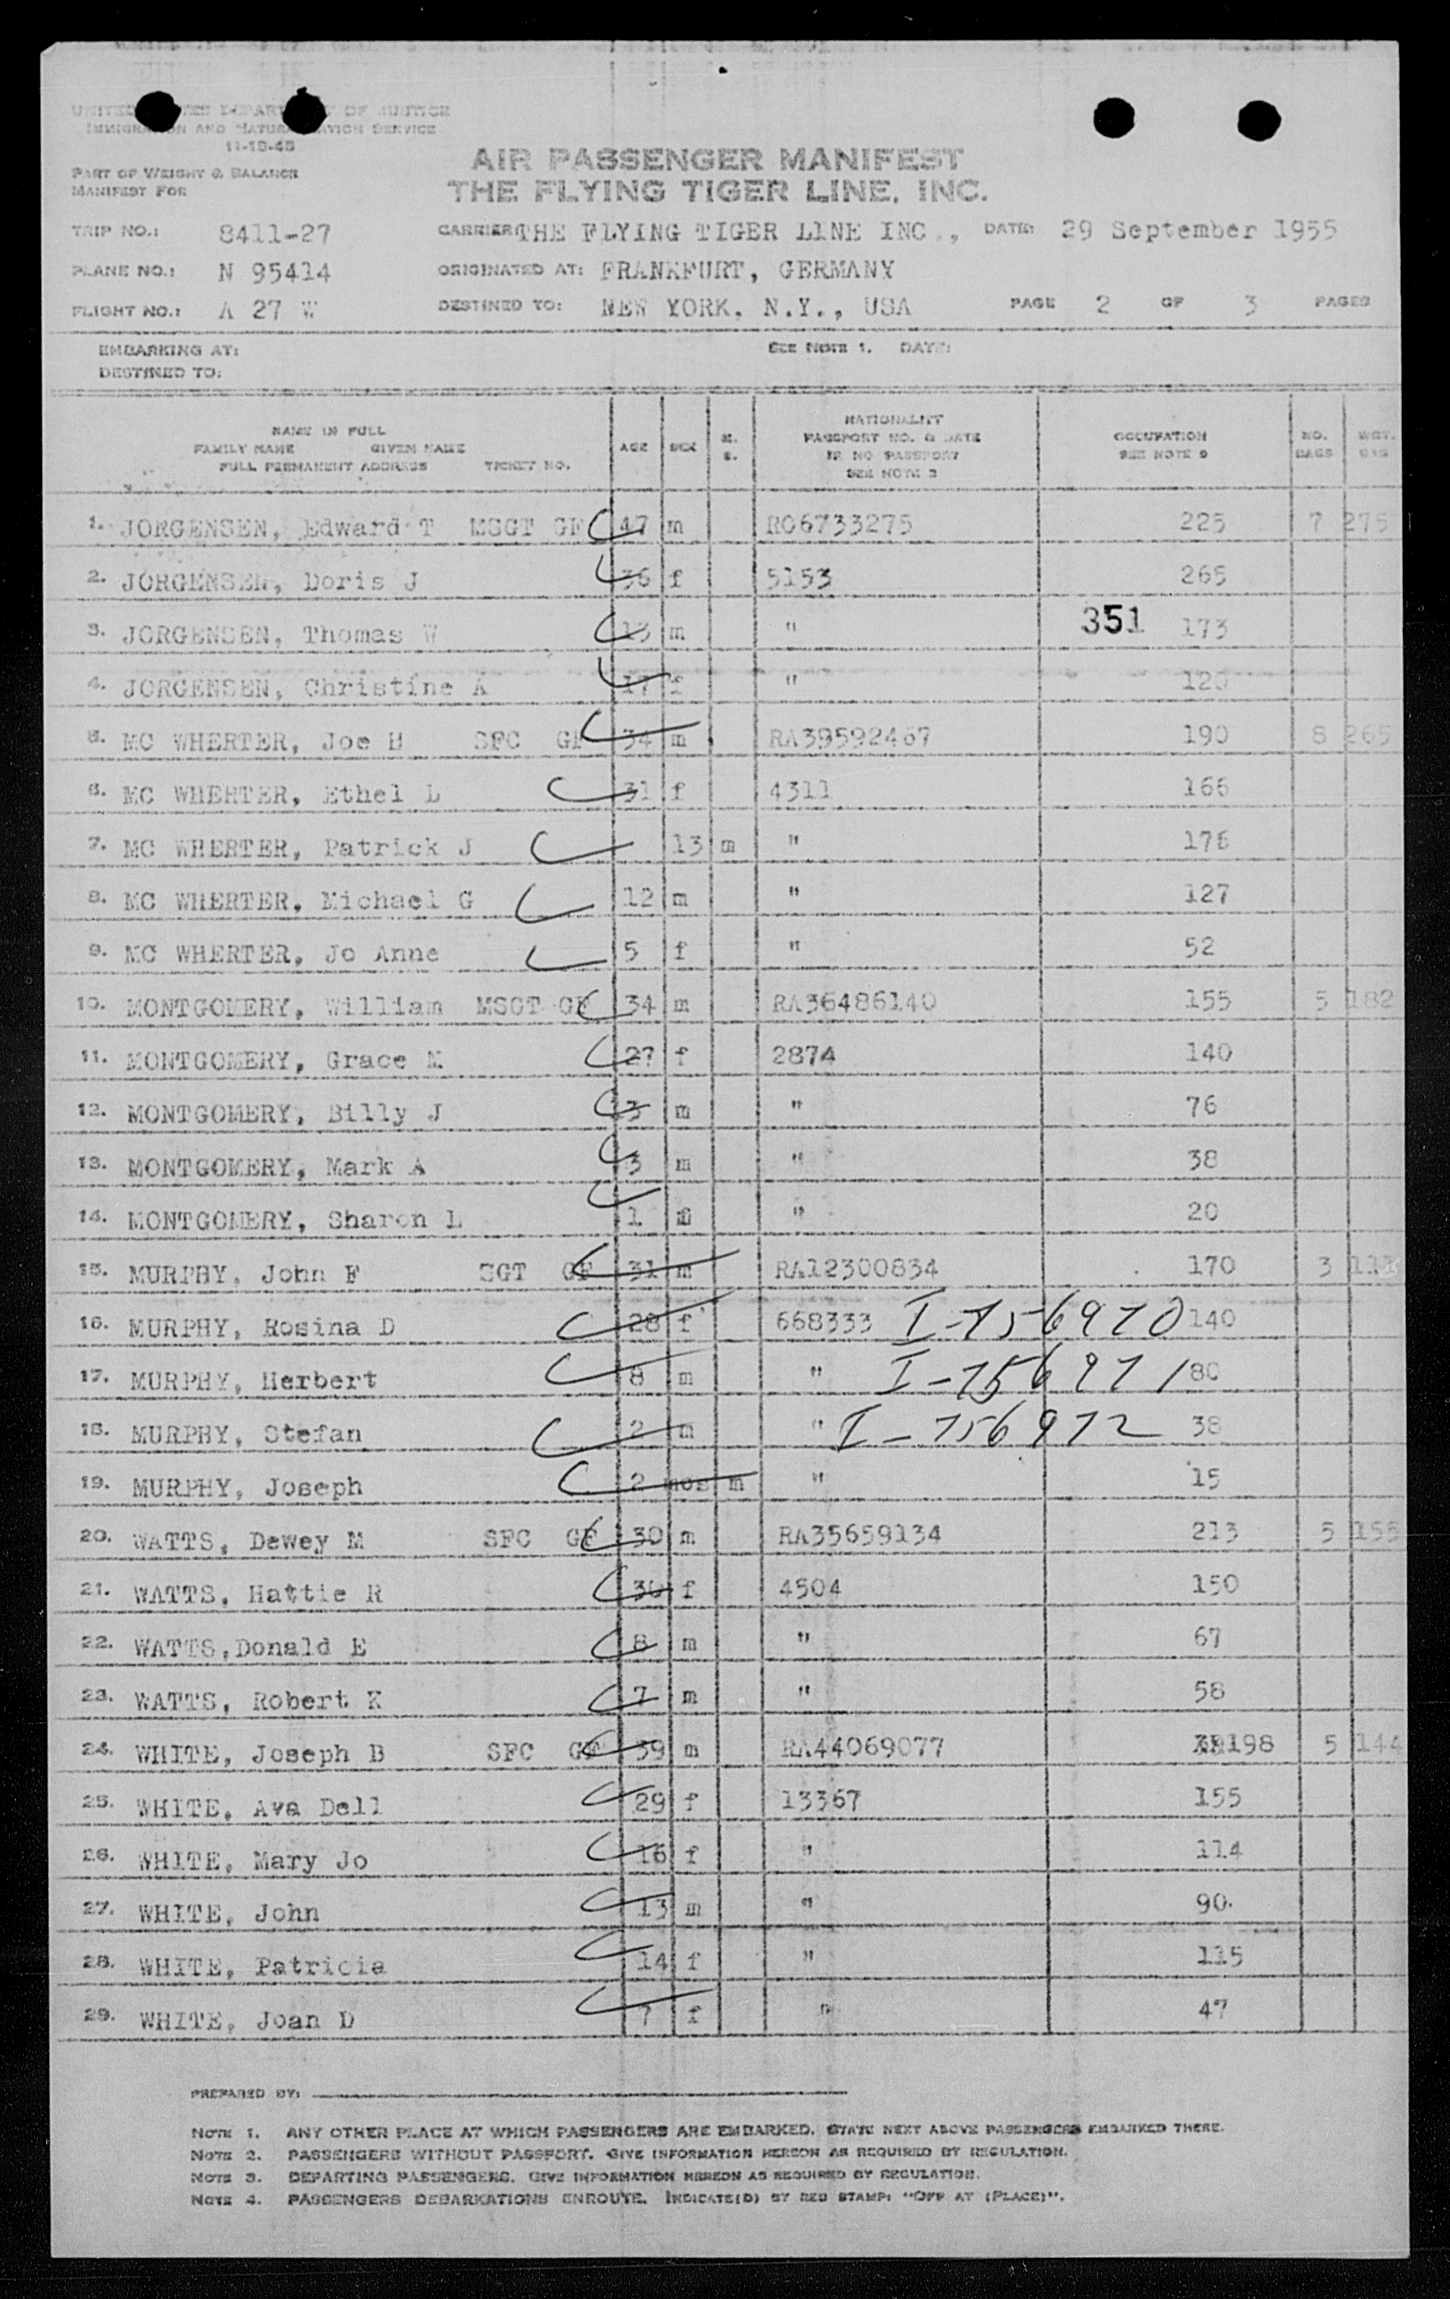 UNITED STATES DEPARTMENT OF JUSTICE
IMMIGRATION AND NATURALIZATION SERVICE
11-15-45
PART OF WEIGHT & BALANCE
MANIFEST FOR
AIR PASSENGER MANIFEST
THE FLYING TIGER LINE, INC.
TRIP NO.: 8411-27 CARRIER: THE FLYING TIGER LINE INC., DATE: 29 September 1955
PLANE NO.: N 95414 ORIGINATED AT: FRANKFURT, GERMANY
FLIGHT NO.: A 27 W DESTINED TO: NEW YORK, N.Y., USA PAGE 2 OF 3 PAGES
EMBARKING AT: SEE NOTE 1. DATE:
DESTINED TO:
NAME IN FULL
FAMILY NAME GIVEN NAME
FULL PERMANENT ADDRESS TICKET NO.
AGE SEX M. S.
NATIONALITY
PASSPORT NO. & DATE
IF NO PASSPORT
SEE NOTE 2
OCCUPATION
SEE NOTE 3
NO. BAGS
WGT. BAG
1. JORGENSEN, Edward T MSGT GF 47 m RO6733275 225 7 275
2. JORGENSEN, Doris J 36 f 5153 265
3. JORGENSEN, Thomas W 13 m " 351 173
4. JORGENSEN, Christine A 17 f "
5. MC WHERTER, Joe H SFC GF 34 m RA39592467 190 8 265
6. MC WHERTER, Ethel L 31 f 4311 166
7. MC WHERTER, Patrick J 13 m " 178
8. MC WHERTER, Michael G 12 m " 127
9. MC WHERTER, Jo Anne 5 f " 52
10. MONTGOMERY, William MSGT GF 34 m RA36486140 155 5 182
11. MONTGOMERY, Grace M 27 f 2874 140
12. MONTGOMERY, Billy J 3 m " 76
13. MONTGOMERY, Mark A 3 m " 38
14. MONTGOMERY, Sharon L 1 " 20
15. MURPHY, John F SGT GF 31 m RA12300834 170 3
16. MURPHY, Rosina D 28 f 668333 I-756970 140
17. MURPHY, Herbert 8 m " I-756971 80
18. MURPHY, Stefan 2 m " I-756972 38
19. MURPHY, Joseph 2 mos m " 15
20. WATTS, Dewey M SFC GF 30 m RA35659134 213 5 155
21. WATTS, Hattie R 30 f 4504 150
22. WATTS,Donald E 8 m " 67
23. WATTS, Robert K 7 m " 58
24. WHITE, Joseph B SFC GF 39 m RA44069077 198 5 144
25. WHITE, Ava Dell 29 f 13367 155
26. WHITE, Mary Jo 16 f " 114
27. WHITE, John 13 m " 90
28. WHITE, Patricia 14 f " 115
29. WHITE, Joan D 7 f " 47
PREPARED BY:
NOTE 1. ANY OTHER PLACE AT WHICH PASSENGERS ARE EMBARKED. STATE NEXT ABOVE PASSENGERS EMBARKED THERE.
NOTE 2. PASSENGERS WITHOUT PASSPORT. GIVE INFORMATION HEREON AS REQUIRED BY REGULATION.
NOTE 3. DEPARTING PASSENGERS. GIVE INFORMATION HEREON AS REQUIRED BY REGULATION.
NOTE 4. PASSENGERS DEBARKATIONS ENROUTE. INDICATE(D) BY RED STAMP: "OFF AT (PLACE)".